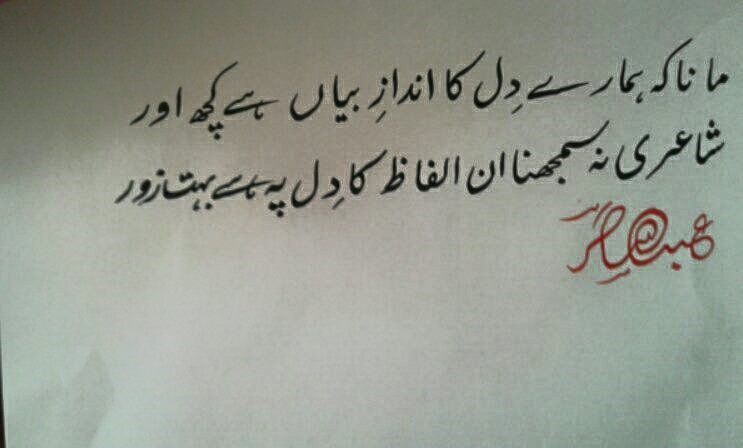 مانا کہ ہمارے دِل کا اندازِ بیاں ہے کچھ اور
شاعری نہ سمجھنا ان الفاظ کا دِل پہ ہے بہت زور